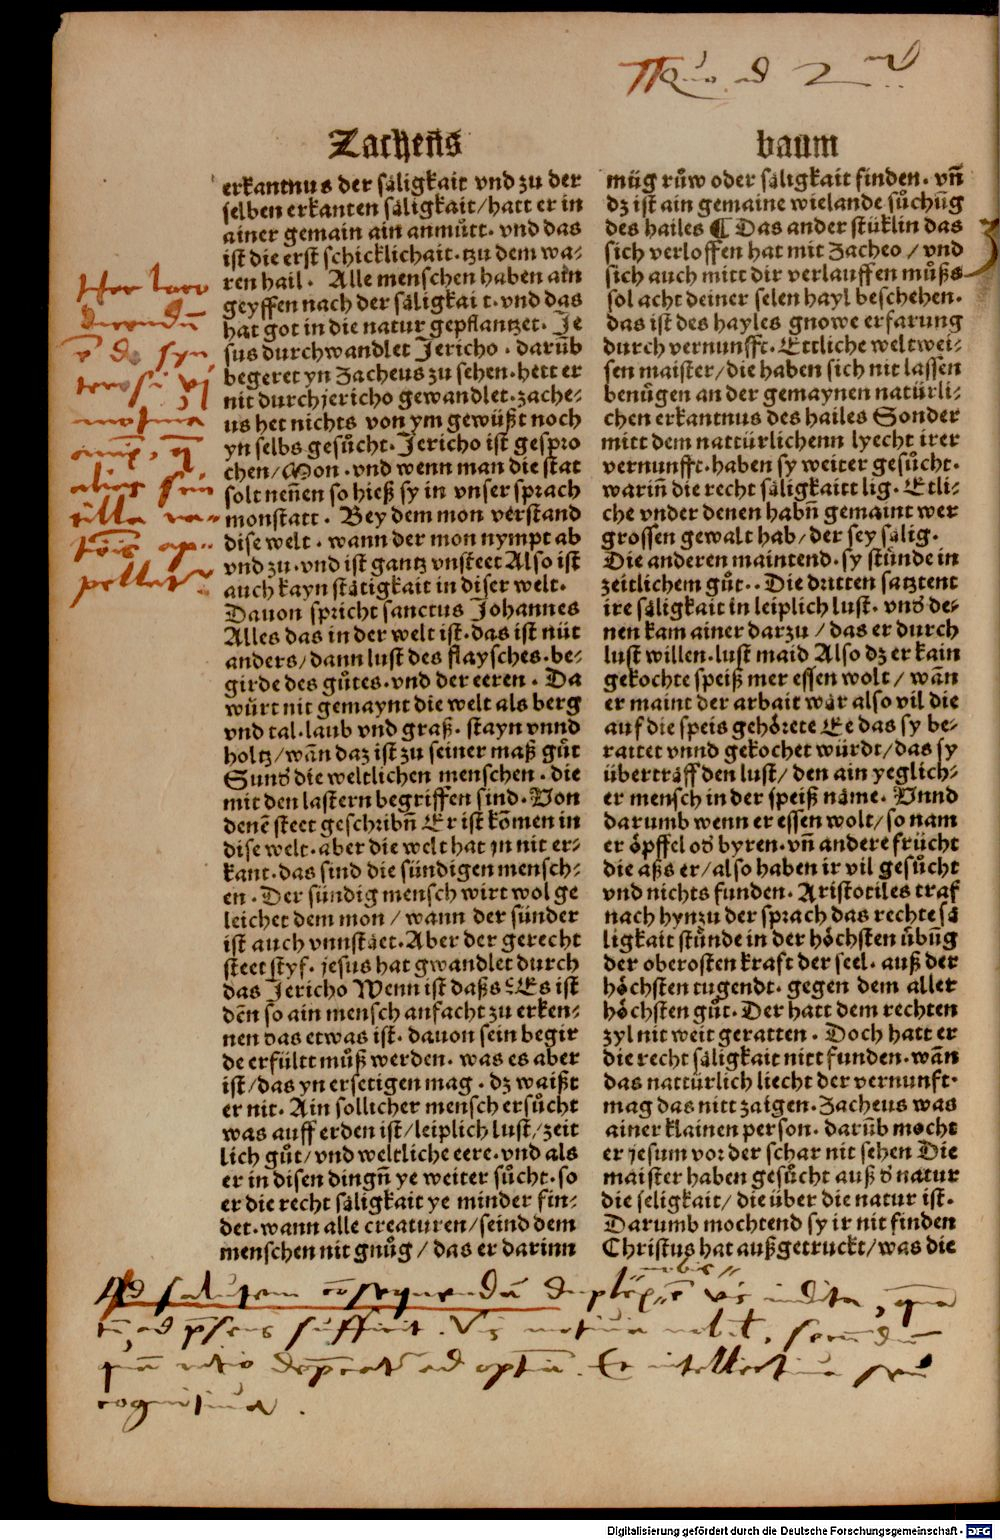 Quo ad 2
Zacheus baum
erkantnus der säligkait vnd zu der
selben erkanten säligkait/hatt er in
ainer gemain ain anmůtt. vnd das
ist die erst schicklichait. tzu dem wa⸗
ren hail. Alle menschen haben ain
geyffen nach der säligkai t. vnd das
hat got in die natur gepflantzet. Je
sus durchwandlet Jericho. darūb
begeret yn Zacheus zu sehen. hett er
nit durchjericho gewandlet. zache⸗
us het nichts von ym gewüßt noch
yn selbs gesůcht. Jericho ist gespro
chen/Mon. vnd wenn man die stat
solt neñen so hieß sy in vnser sprach
monstatt. Bey dem mon verstand
dise welt. wann der mon nympt ab
vnd zu. vnd ist gantz vnsteet Also ist
auch kayn stätigkait in diser welt.
Dauon spricht sanctus Johannes
Alles das in der welt ist. das ist nüt
anders/dann lust des flaysches. be⸗
girde des gůtes. vnd der eeren. Da
würt nit gemaynt die welt als berg
vnd tal. laub vnd graß. stayn vnnd
holtz/wān daz ist zu seiner maß gůt
Sunď die weltlichen menschen. die
mit den lastern begriffen sind. Von
denē steet geschribñ Er ist kōmen in
dise welt. aber die welt hat yn nit er⸗
kant. das sind die sündigen mensch⸗
en. Der sündig mensch wirt wol ge
leichet dem mon/wann der sünder
ist auch vnnstäet. Aber der gerecht
steet styf. jesus hat gwandlet durch
das Jericho Wenn ist daßs? Es ist
deñ so ain mensch anfacht zu erken⸗
nen das etwas ist. dauon sein begir
de erfültt můß werden. was es aber
ist/das yn ersetigen mag. dz waißt
er nit. Ain sollicher mensch ersůcht
was auff erden ist/leiplich lust/zeit
lich gůt/vnd weltliche eere. vnd als
er in disen dingñ ye weiter sůcht. so
er die recht säligkait ye minder fin⸗
det. wann alle creaturen/seind dem
menschen nit gnůg/das er darinn
müg růw oder säligkait finden. vñ
dz ist ain gemaine wielande sůchūg
des hailes ¶ Das ander stüklin das
sich verloffen hat mit Zacheo/vnd
sich auch mitt dir verlauffen můßs
sol acht deiner selen hayl beschehen.
das ist des hayles gnowe erfarung
durch vernunfft. Ettliche weltwei⸗
sen maister/die haben sich nit lassen
benůgen an der gemaynen natürli⸗
chen erkantnus des hailes Sonder
mitt dem nattürlichenn lyecht irer
vernunfft. haben sy weiter gesůcht.
wariñ die recht säligkaitt lig. Etli⸗
che vnder denen habñ gemaint wer
grossen gewalt hab/der sey sälig.
Die anderen maintend. sy stünde in
zeitlichem gůt.. Die dritten satztent
ire säligkait in leiplich lust. vnď de⸗
nen kam ainer darzu/das er durch
lust willen. lust maid Also dz er kain
gekochte speiß mer essen wolt/wān
er maint der arbait wär also vil die
auf die speis gehörete Ee das sy be⸗
raitet vnnd gekochet würdt/das sy
überträff den lust/den ain yeglich⸗
er mensch in der speiß näme. Vnnd
darumb wenn er essen wolt/so nam
er öpffel oď byren. vñ andere frücht
die aßs er/also haben ir vil gesůcht
vnd nichts funden. Aristotiles traf
nach hynzu der sprach das rechte sä
ligkait stünde in der höchsten übūg
der oberosten kraft der seel. auß der
höchsten tugendt. gegen dem aller
höchsten gůt. Der hatt dem rechten
zyl nit weit geratten. Doch hatt er
die recht säligkait nitt funden. wān
das nattürlich liecht der vernunft.
mag das nitt zaigen. Zacheus was
ainer klainen person. darūb mocht
er jesum vor der schar nit sehen Die
maister haben gesůcht auß ď natur
die seligkait/die über die natur ist.
Darumb mochtend sy ir nit finden
Christus hat außgetruckt/was die
Ad salutem cōsequendā duplex ē nobis vis indita,
tū ad p̄sens sufficit. Vis motiua
ratio ad optīa. Et intellectiua seu
cognitiua.
Digitalisierung gefördert durch die Deutsche Forschungsgemeinschaft - DFG